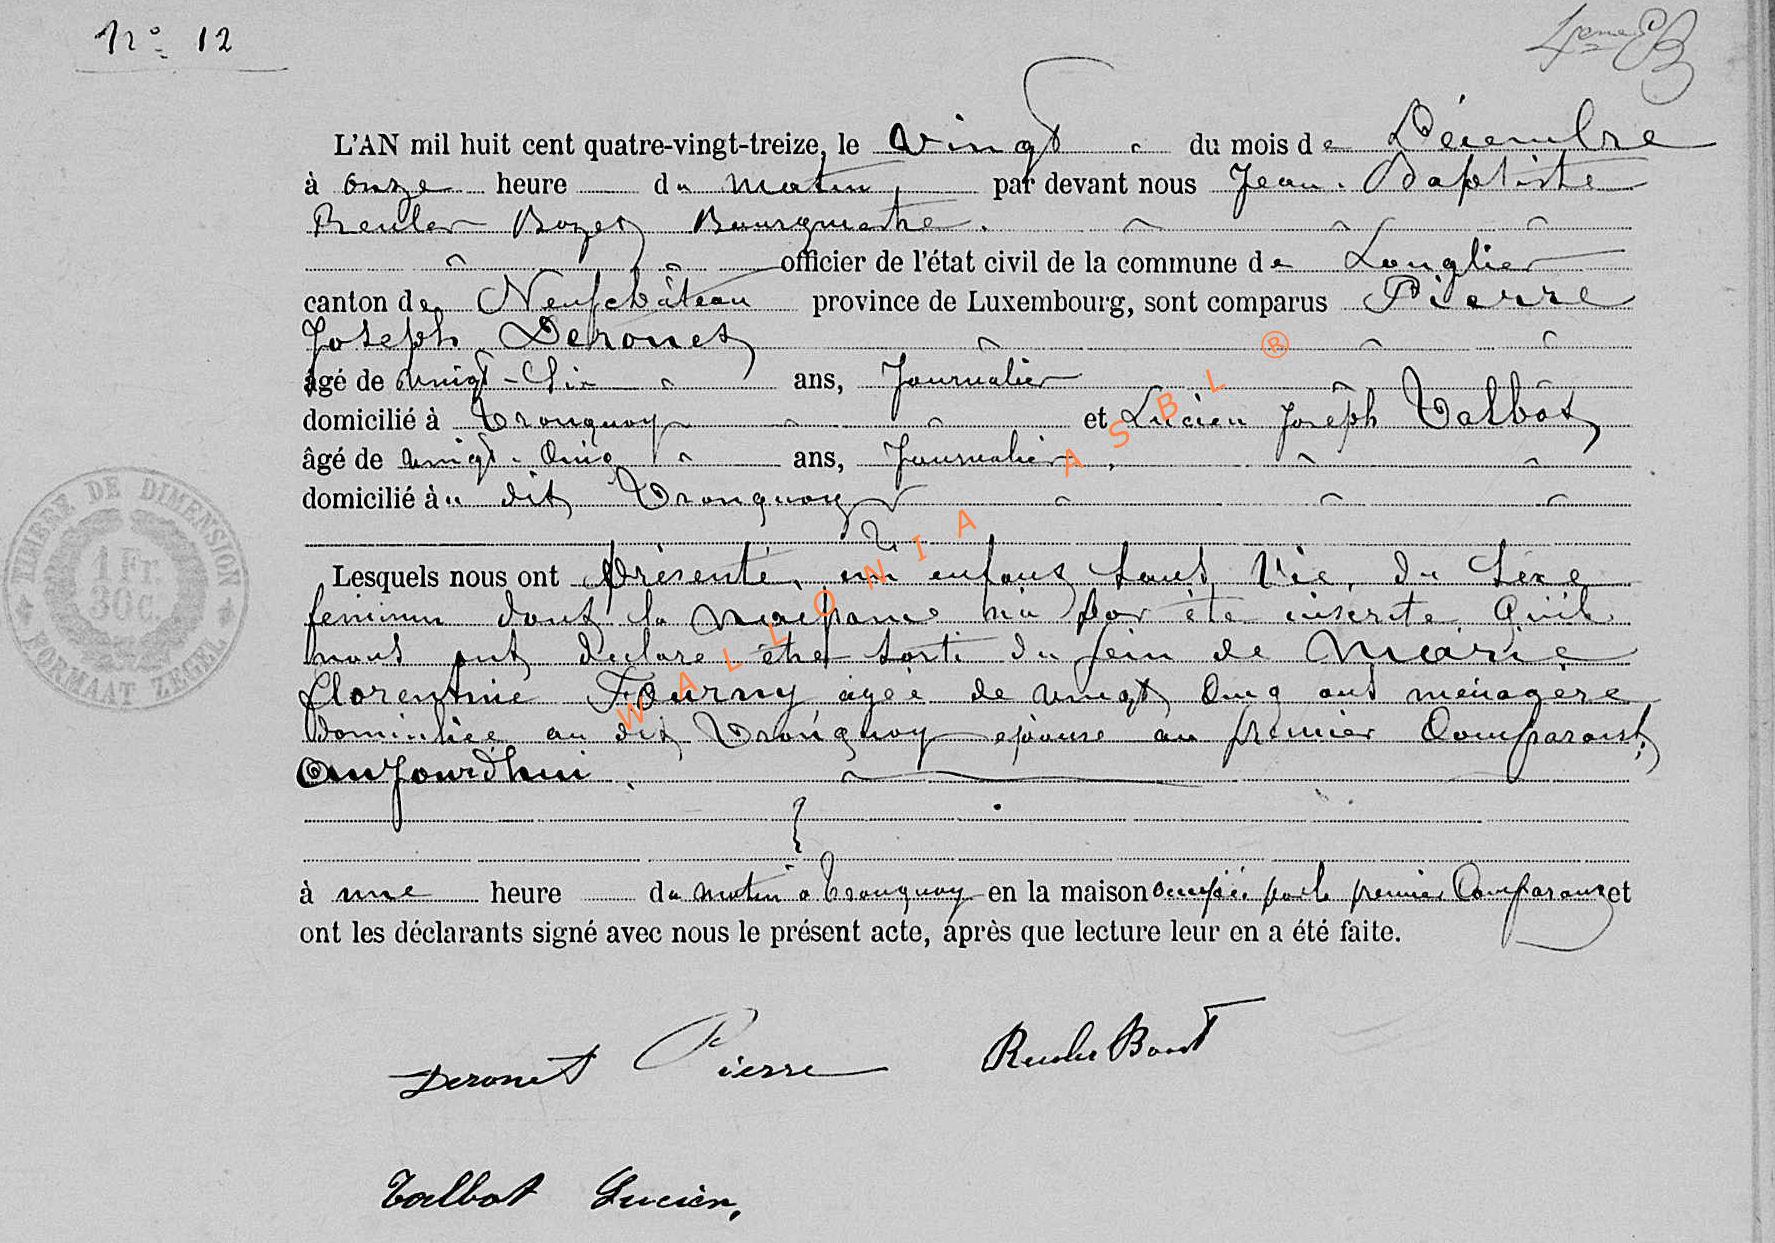 N° 12
L'AN mil huit cent quatre-vingt-treize, le vingt du mois de Décembre
à onze heure du matin, par devant nous Jean-Baptiste
Reuler Bourgmestre.
officier de l'état civil de la commune de Longlier
canton de Neufchâteau province de Luxembourg, sont comparus Pierre
Joseph Deronet
âgé de vingt-six ans, Journalier
domicilié à Tronquoy et Lucien Joseph Talbot
âgé de vingt-cinq ans, Journalier,
domicilié àu dit Tronquoy
Lesquels nous ont présenté, un enfant sans vie, du sexe
feminin dont la naissance n'a pas été inscrite qu'ils
nous ont declaré être sorti du sein de Marie
florentine Fourny agée de vingt cinq ans ménagère
domiciliée au dit Tronquoy epouse au premier Comparant,
aujourd'hui
à une heure du matin à Tronquoy en la maison occupée par le premier Comparant et
ont les déclarants signé avec nous le présent acte, après que lecture leur en a été faite.
Deronet Pierre
Talbot Lucien,
TIMBRE DE DIMENSION
1 Fr
30 C.
FORMAAT ZEGEL
WALLONIA ASBL ®